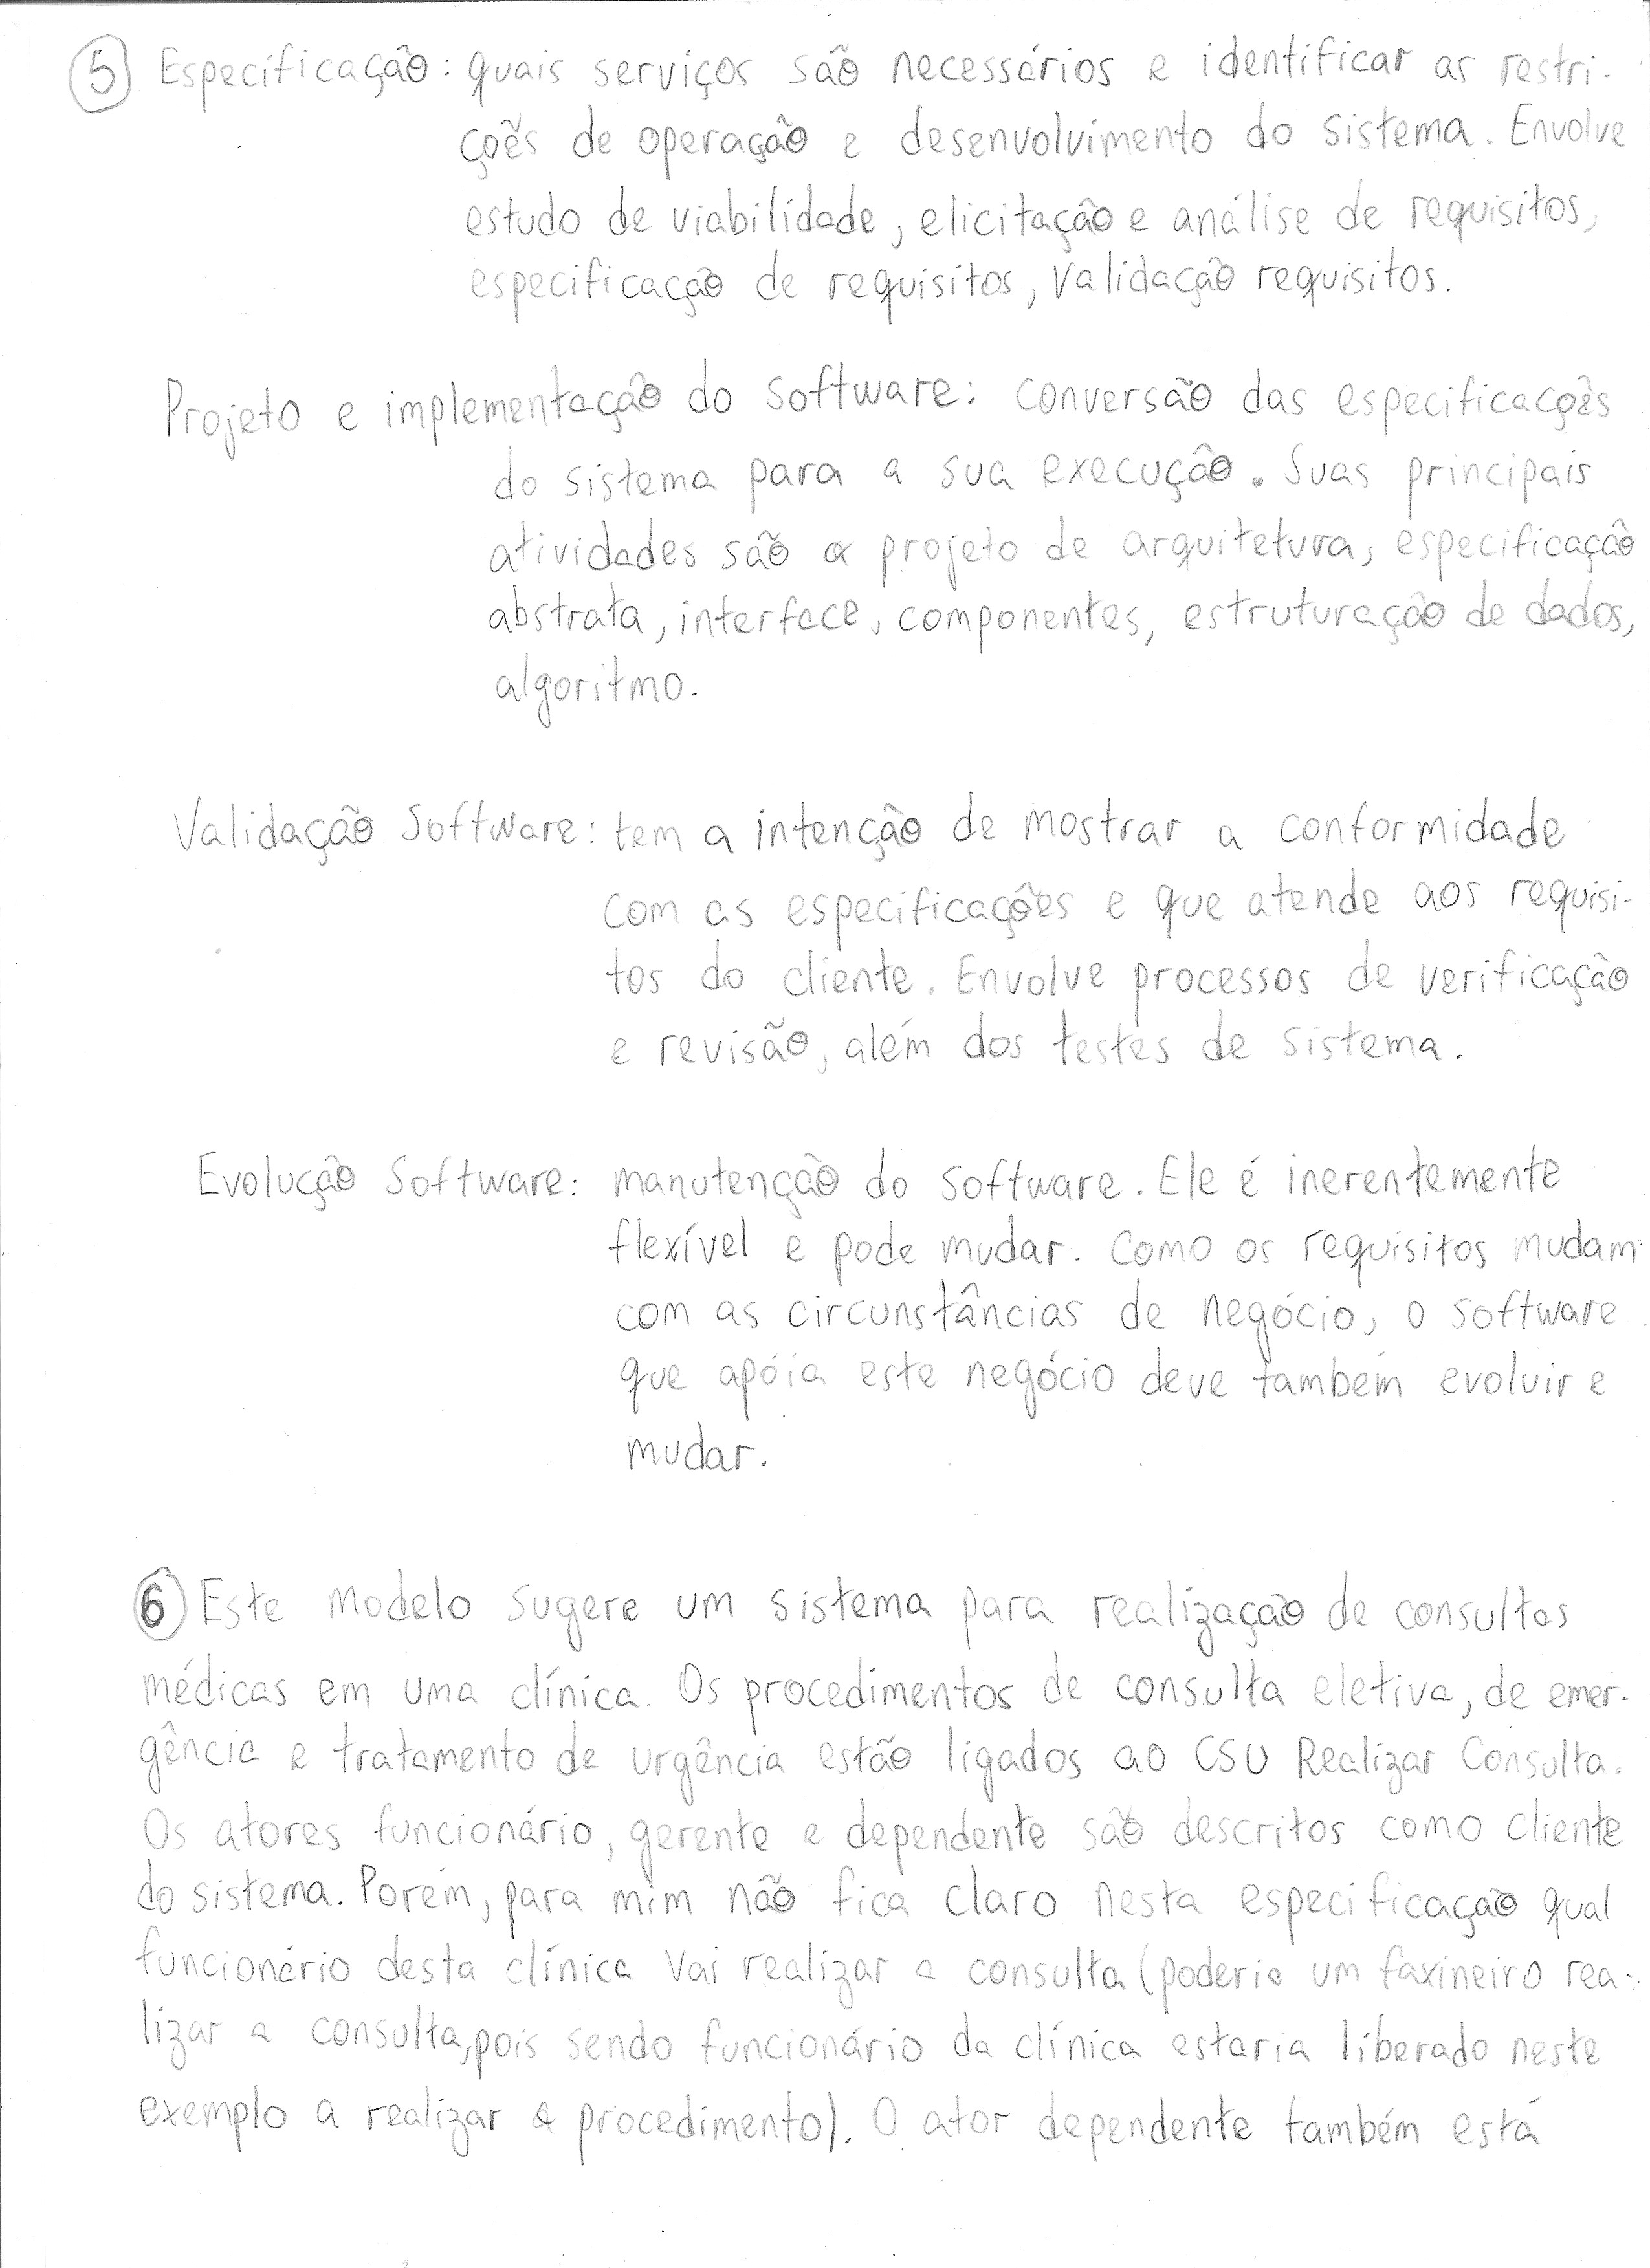 5 Especificação: quais serviços são necessários e identificar as restri-
ções de operação e desenvolvimento do sistema. Envolve
estudo de viabilidade, elicitação e análise de requisitos,
especificação de requisitos, validação requisitos.
Projeto e implementação do software: conversão das especificações
do sistema para a sua execução. Suas principais
atividades são o projeto de arquitetura, especificação
abstrata, interface, componentes, estruturação de dados,
algoritmo.
Validação Software: tem a intenção de mostrar a conformidade
com as especificações e que atende aos requisi-
tos do cliente. Envolve processos de verificação
e revisão, além dos testes de sistema.
Evolução Software: manutenção do software. Ele é inerentemente
flexível e pode mudar. Como os requisitos mudam
com as circunstâncias de negócio, o software
que apóia este negócio deve também evoluir e
mudar.
6 Este modelo sugere um sistema para realização de consultas
médicas em uma clínica. Os procedimentos de consulta eletiva, de emer-
gência e tratamento de urgência estão ligados ao CSU Realizar Consulta.
Os atores funcionário, gerente e dependente são descritos como cliente
do sistema. Porém, para mim não fica claro nesta especificação qual
funcionário desta clínica vai realizar a consulta (poderia um faxineiro rea-
lizar a consulta, pois sendo funcionário da clínica estaria liberado neste
exemplo a realizar o procedimento). O ator dependente também está